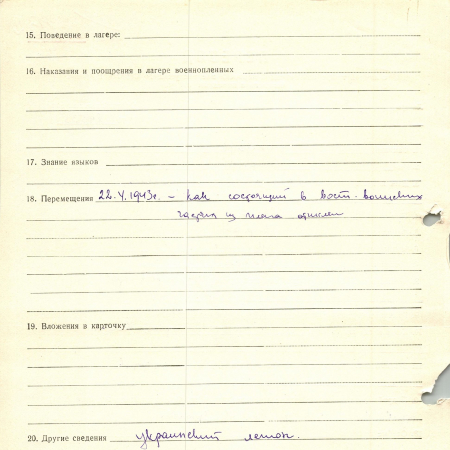 15. Поведение в лагере:
16. Наказания и поощрения в лагере военнопленных
17. Знание языков
18. Перемещения 22.V.1943г. – как состоящий в вост. войсковых
частях из плена отчислен
19. Вложения в карточку
20. Другие сведения украинский легион.